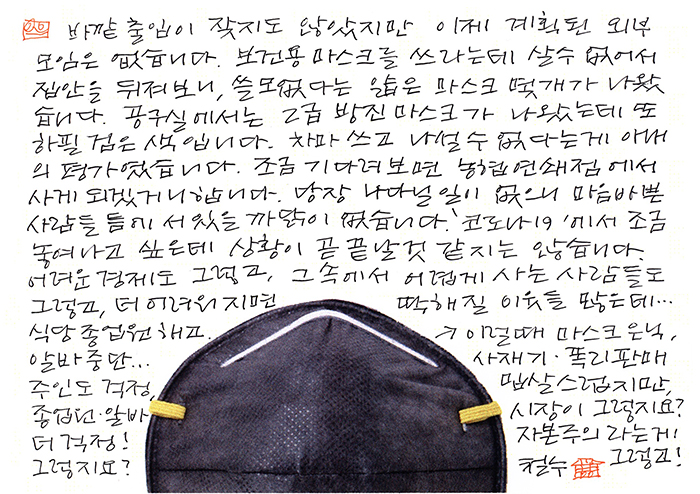 바깥 출입이 잦지도 않았지만 이제 계획된 외부
모임은 없습니다. 보건용 마스크를 쓰라는데 살수 없어서
집안을 뒤져보니, 쓸모없다는 얇은 마스크 몇개가 나왔
습니다. 공구실에서는 2급 방진마스크가 나왔는데 또
하필 검은 색 입니다. 차마 쓰고 나설수 없다는게 아내
의 평가였습니다. 조금 기다려보면 농협연쇄점에서
사게 되겠거니합니다. 당장 나다닐일이 없으니 마음바쁜
사람들 틈에 서있을 까닭이 없습니다. '코로나19'에서 조금
놓여나고 싶은데 상황이 곧 끝날것 같지는 않습니다.
어려운경제도 그렇고, 그속에서 어렵게 사는 사람들도
그렇고, 더 어려워지면 딱해질 이웃들 많은데...
식당종업원해고.
알바중단...
주인도 걱정,
종업원·알바
더걱정!
그렇지요?
→ 이럴때 마스크은닉,
사재기·폭리판매
밉살스럽지만,
시장이 그렇지요?
자본주의 라는게
그렇고!
철수